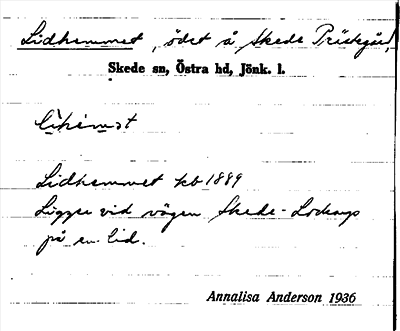 Lidhemmet, ödet å Skede Prästgård,
Skede sn, Östra hd, Jönk. l.
Lidhemmet kb 1889
Ligger vid vägen Skede-
på en lid.
Annalisa Anderson 1936